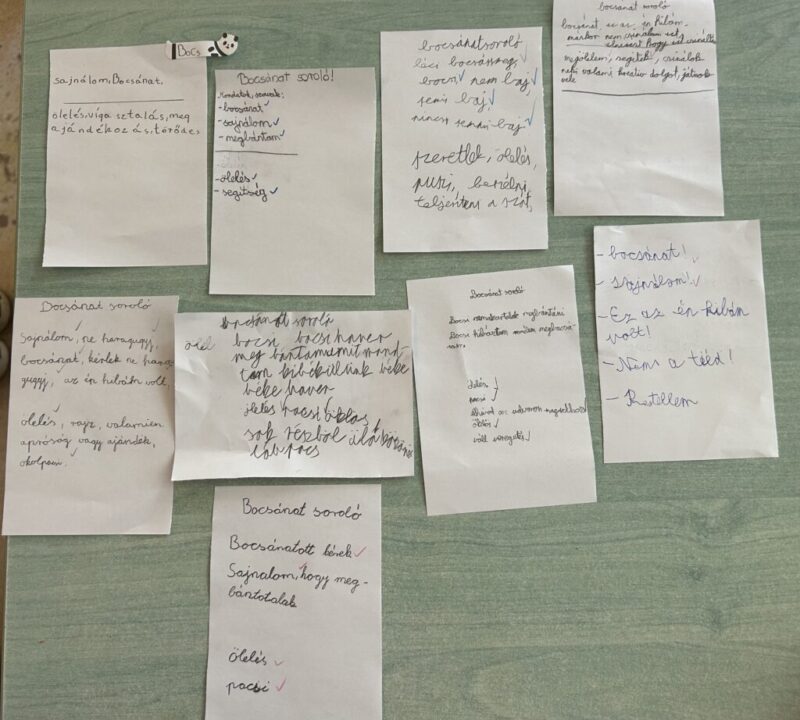 Bocs
sajnálom, Bocsánat.
ölelés, víga sztalás, meg
ajándékoz ás, törődés
Bocsánat soroló!
Mondatok, szavak:
- bocsánat
- sajnálom
- megbántam
- ölelés
- segítség
bocsánatsoroló
bocsi nem baj
semi baj
nincs semmi baj
szeretlek, ölelés,
puszi, beszélni,
teljesíteni a szót,
bocsánat soroló
bocsánat, ez az én hibám,
máskor nem csinálom ezt,
megölelem, segítek, csinálok
neki valami kreatív dolgot, játszok
vele
Bocsánat soroló
Sajnálom, ne haragugy,
bocsánat, kérlek ne harag
guggy, az én hibám volt,
ölelés, rajz, valamien
apróság vagy ajándék,
ökölpacsi
bocsánat soroló
ölel
bocsi bocsi haver
meg bántam amit mond
tam kibékülünk béke
béke haver
ölelés pacsi
sok részből
Bocsánat soroló
Bocsi nem akartalak megbántani
Bocsi hibáztam
ölelés
pacsi
ökölös
váll veregetés
- bocsánat!
- sajnálom!
- Ez az én hibám
volt!
- Nem a tééd!
Bocsánat soroló
Bocsánatott kérek
Sajnalom, hogy meg-
bántotalak
ölelés
pacsi